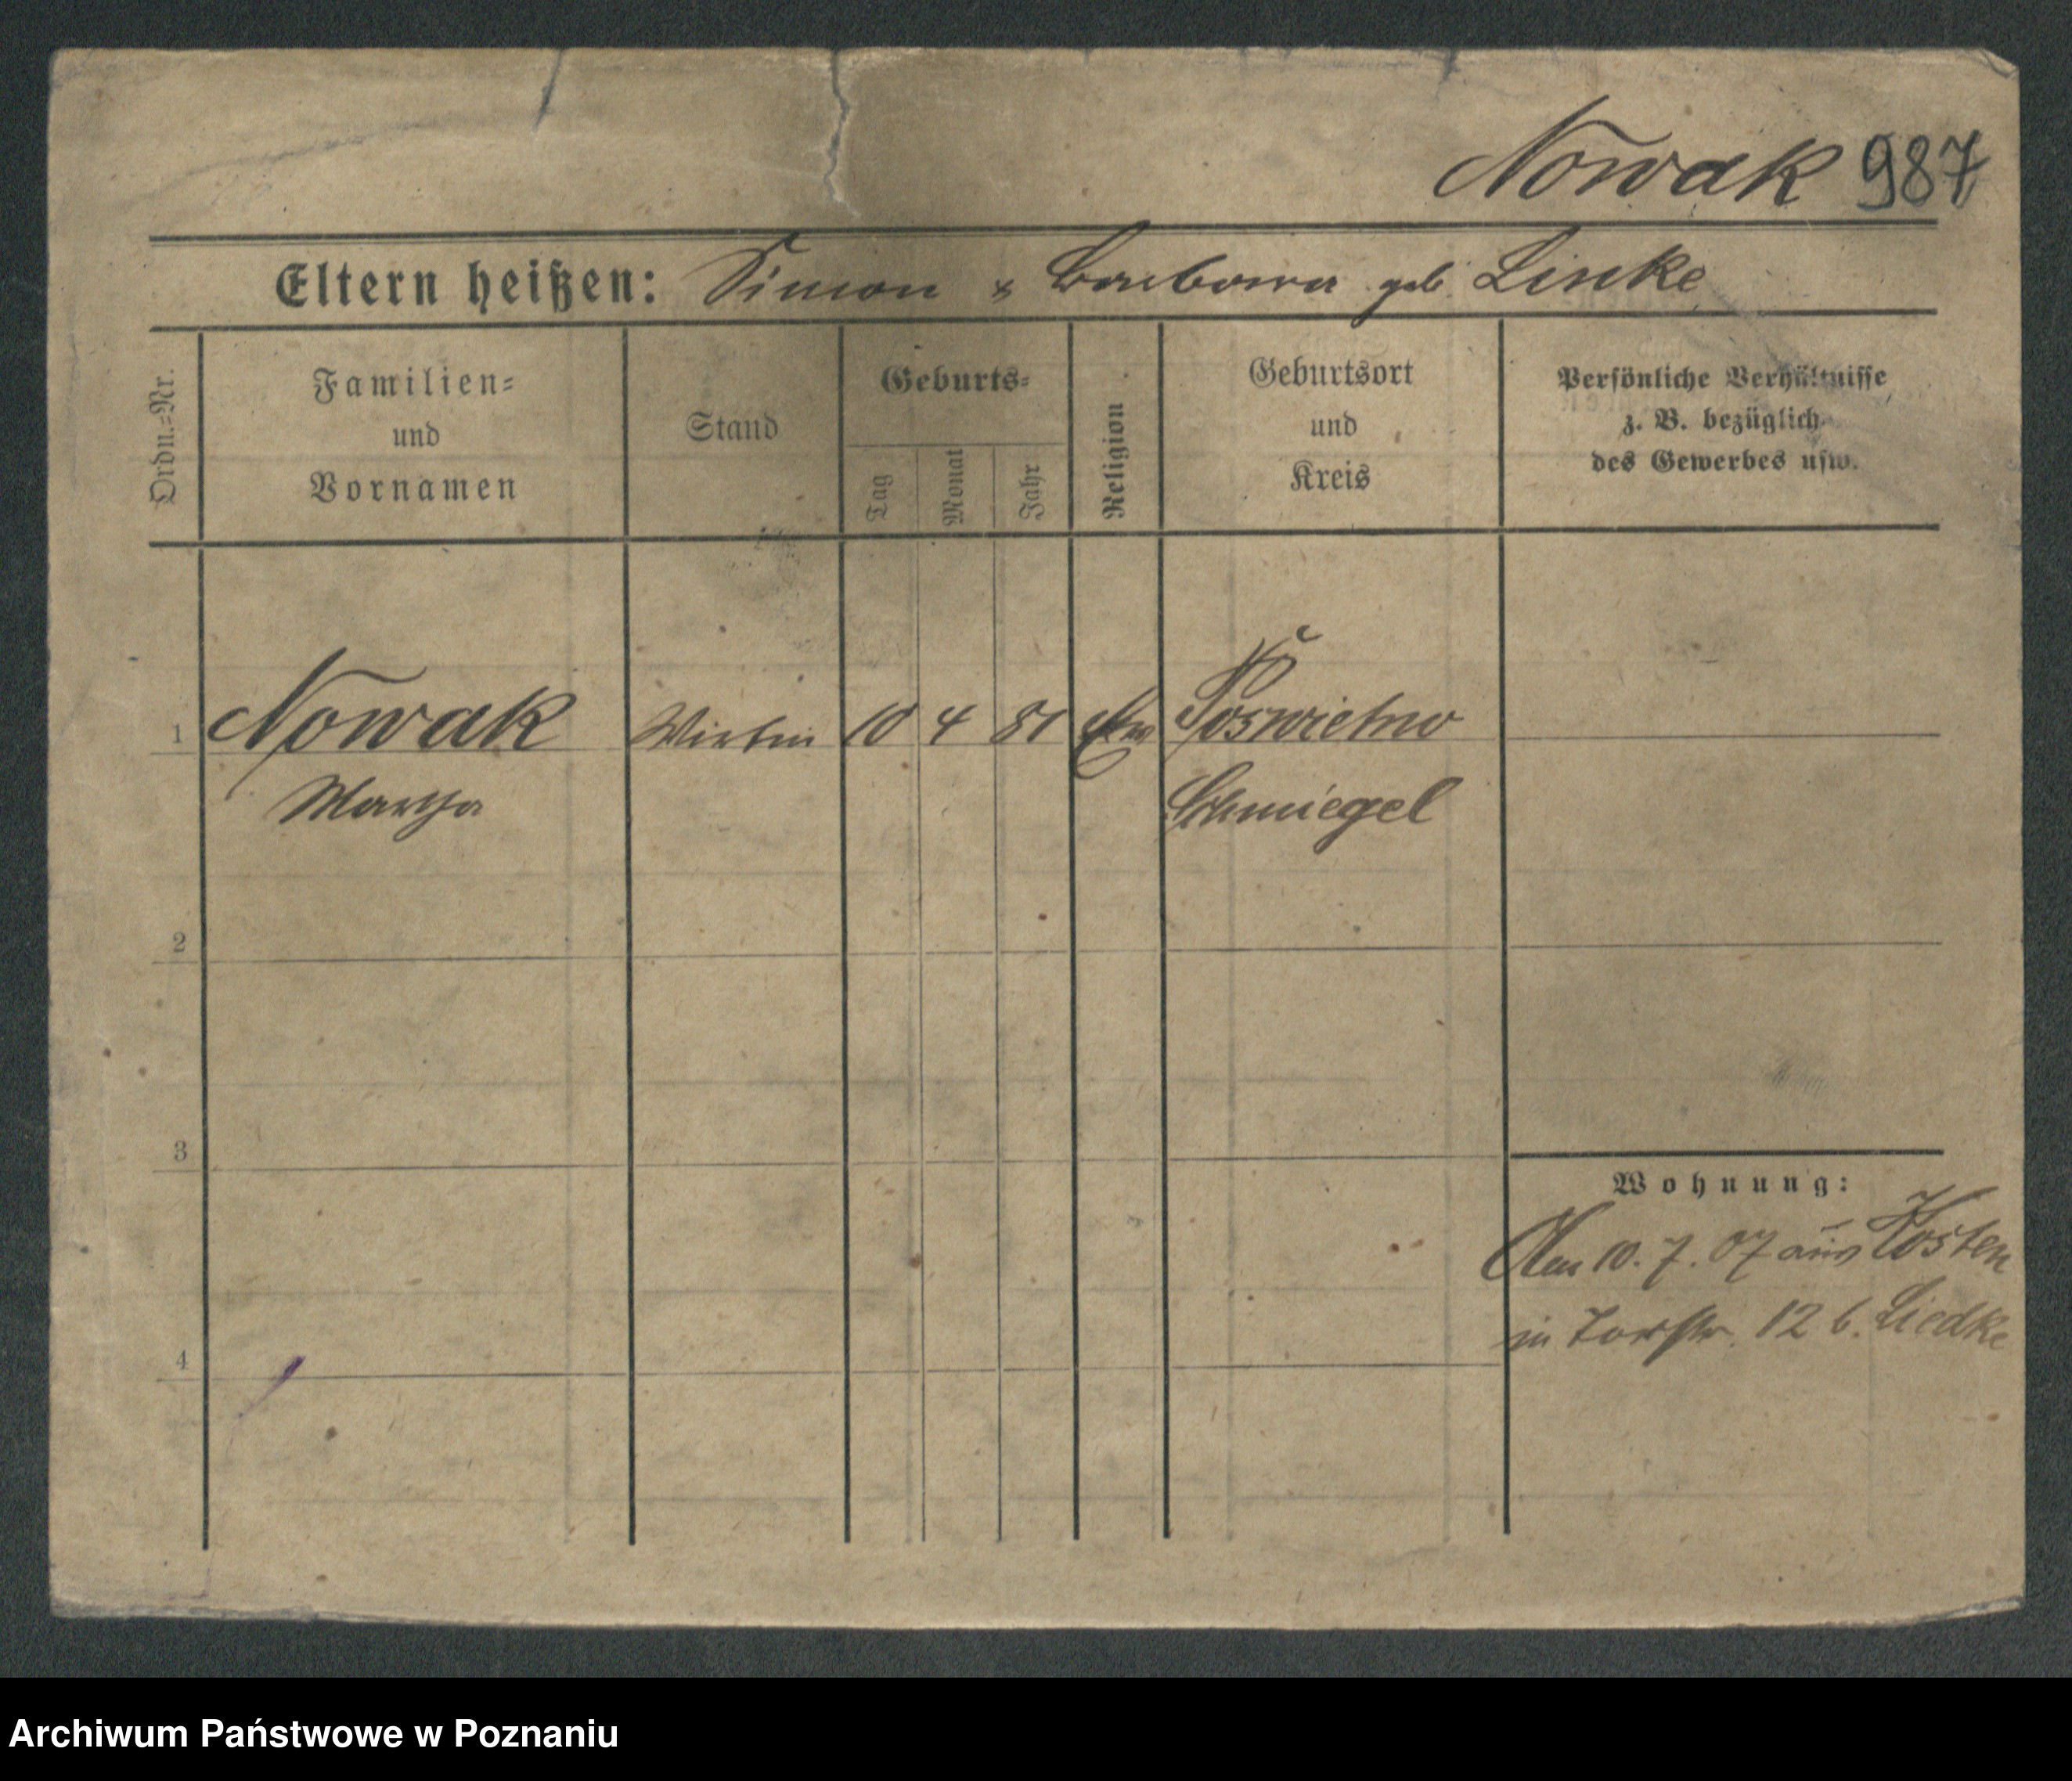 Nowak 987
Eltern heißen: Simon & Barbara geb. Linke
Ordn.=Nr.
Familien=
und
Vornamen
Stand
Geburts=
Tag
Monat
Jahr
Religion
Geburtsort
und
Kreis
Persönliche Verhältnisse
z. B. bezüglich
des Gewerbes usw.
1 Nowak Wirtin 10 4 81 Poswietno
Martha Schmiegel
2
3
Wohnung:
Am 10. 7. 07 aus Kosten
in Torstr. 12 b. Liedke
4
Archiwum Państwowe w Poznaniu